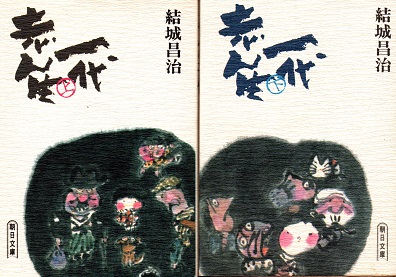 結城昌治
志ん生一代
上
朝日文庫
結城昌治
志ん生一代
下
朝日文庫